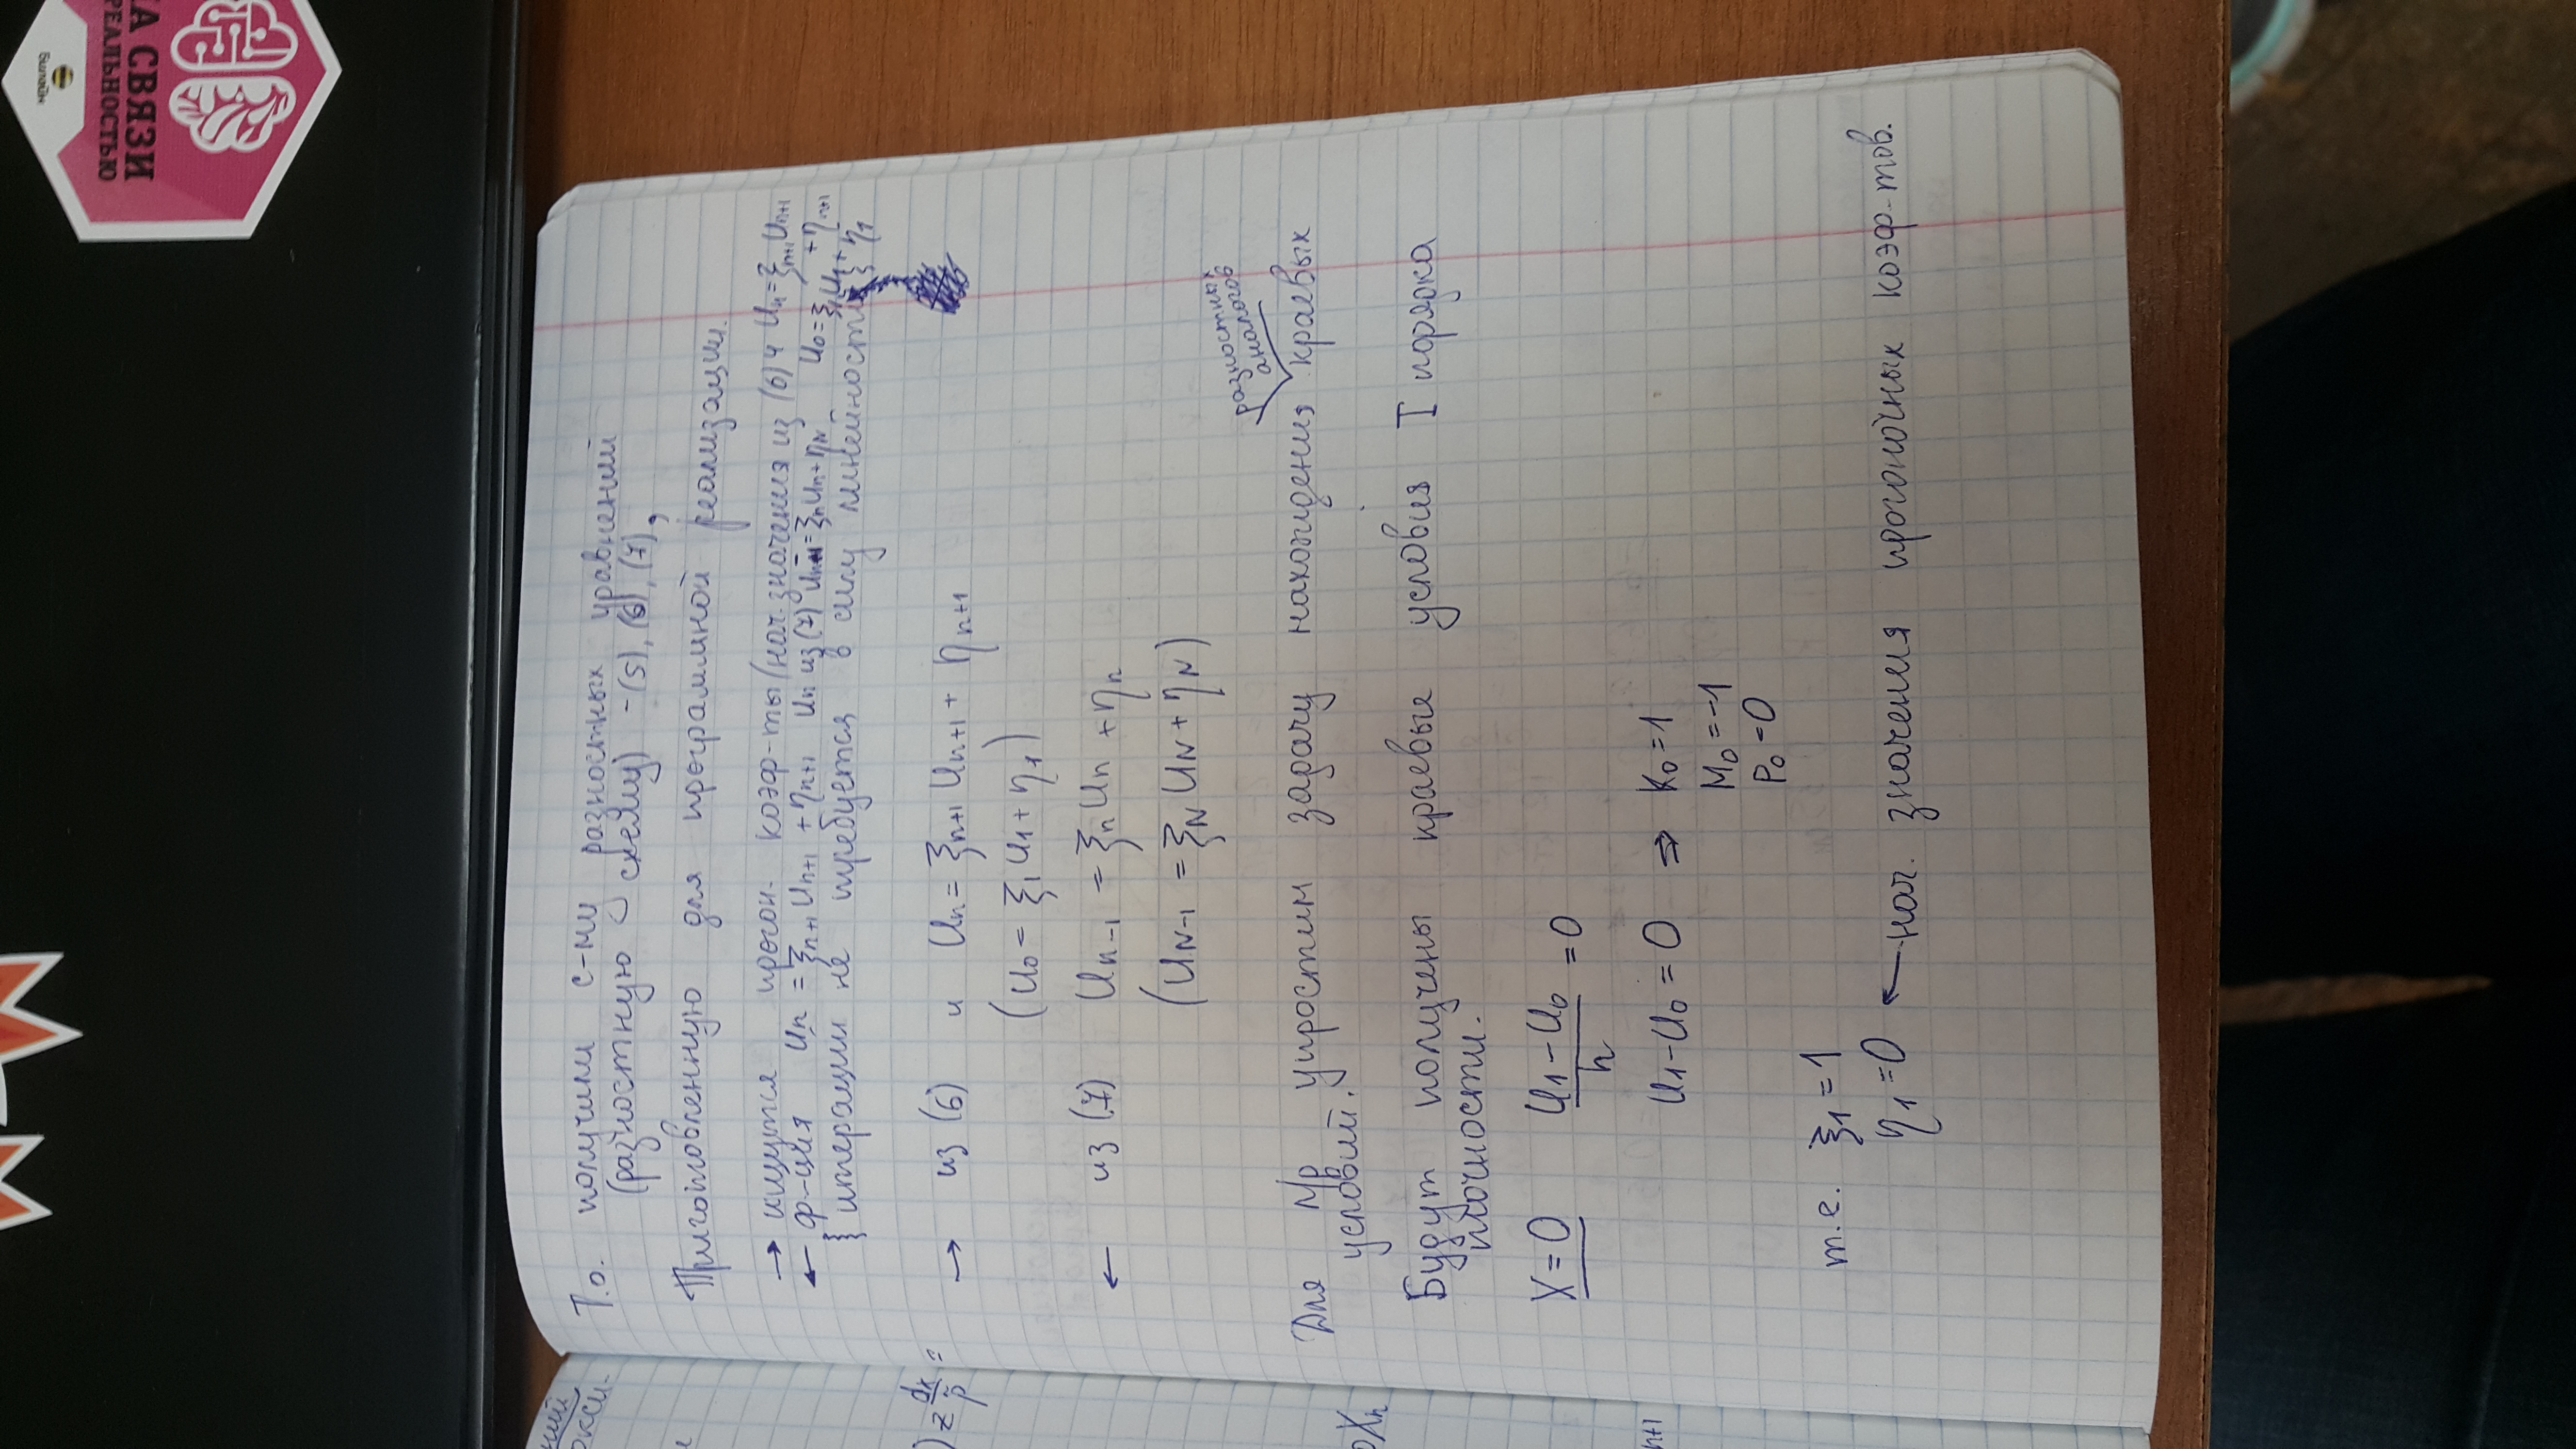 Т.о. получили с-му разностных уравнений
(разностную схему) - (5), (6), (7),
Приготовленную для программной реализации.
→ ищутся прогон. коэф-ты (нач. значения из (6) и Un = ξn+1 Un+1 + ηn+1
← ф-ция Un = ξn+1 Un+1 + ηn+1 Un из (7) Un-1 = ξn Un + ηn U0 = ξ1 U1 + η1
{ итерации не требуется в силу линейности }
→ из (6) и Un = ξn+1 Un+1 + ηn+1
(U0 = ξ1 U1 + η1)
← из (7) Un-1 = ξn Un + ηn
(UN-1 = ξN UN + ηN)
разностных
аналогов
Для Пр упростим задачу нахождения краевых
условий.
Будут получены краевые условия I порядка
точности.
X = 0 (U1 - U0)/h = 0
U1 - U0 = 0 ⇒ K0 = 1
M0 = -1
P0 = 0
т.е. ξ1 = 1
η1 = 0 ← нач. значения прогоночных коэф-тов.
n+1
) z dz/β =
А СВЯЗИ
РЕАЛЬНОСТЬЮ
Билайн